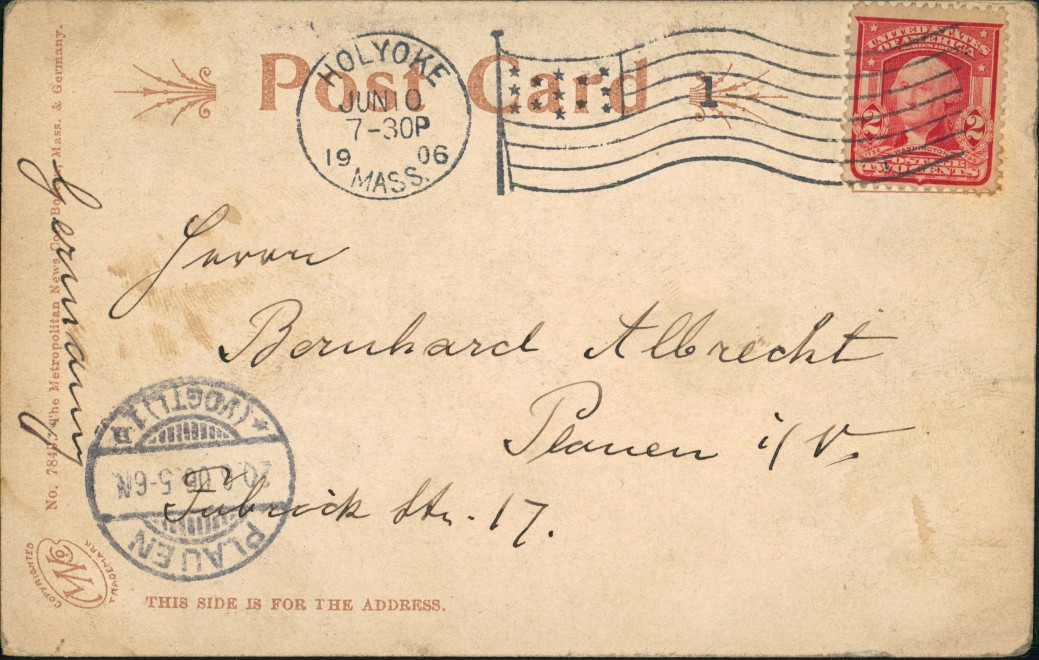 Post Card
HOLYOKE
JUN 10
7-30P
19 06
MASS.
1
UNITED STATES
OF AMERICA
2 2
WASHINGTON
POSTAGE
TWO CENTS
Herrn
Bernhard Albrecht
Plauen i/V.
Fabrick Str. 17.
Germany
The Metropolitan News Co. Mass. & Germany.
PLAUEN
(VOGTL) 1
06.5-6N
COPYRIGHTED
TRADEMARK
THIS SIDE IS FOR THE ADDRESS.